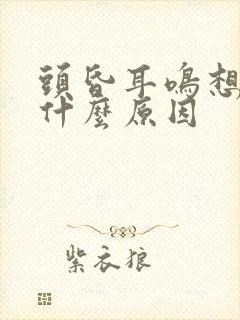 頭昏耳鳴想
什麼原因
紫衣狼